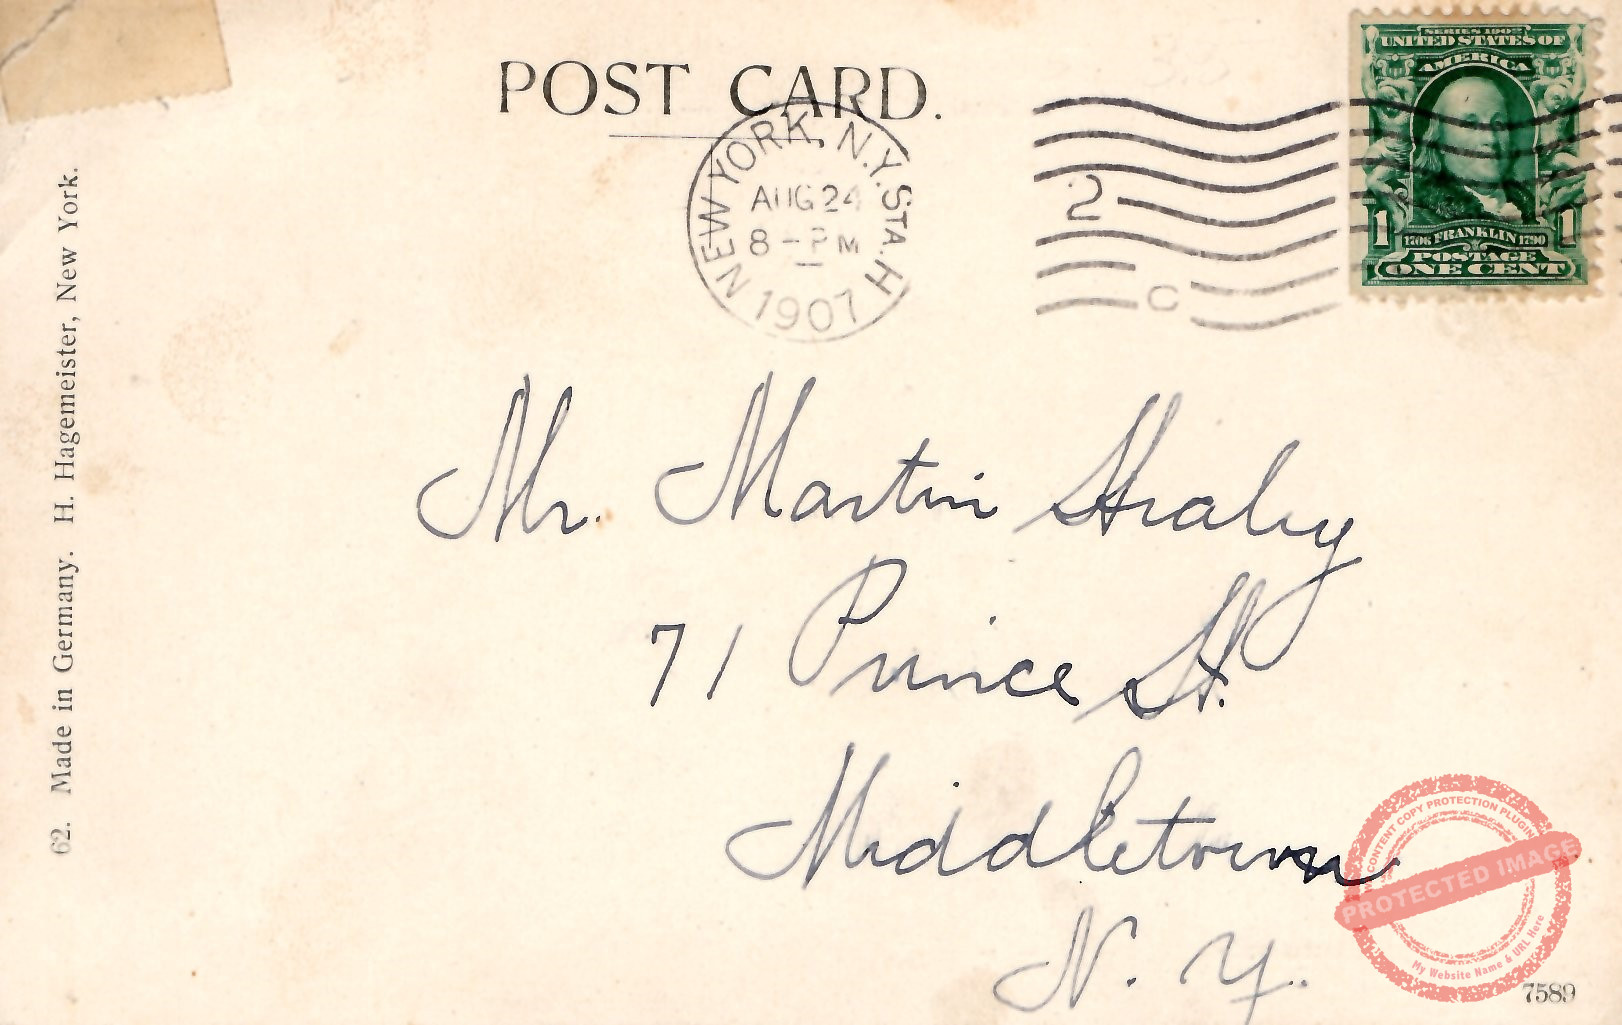 POST CARD.
NEW YORK, N.Y. STA. H
AUG 24
8 - PM
1907
2
C
SERIES 1902
UNITED STATES OF
AMERICA
1 1706 FRANKLIN 1790 1
POSTAGE
ONE CENT
62. Made in Germany. H. Hagemeister, New York.
Mr. Martin
71 Prince St.
Middletown
N. Y.
CONTENT COPY PROTECTION PLUGIN
PROTECTED IMAGE
My Website Name & URL Here
7589